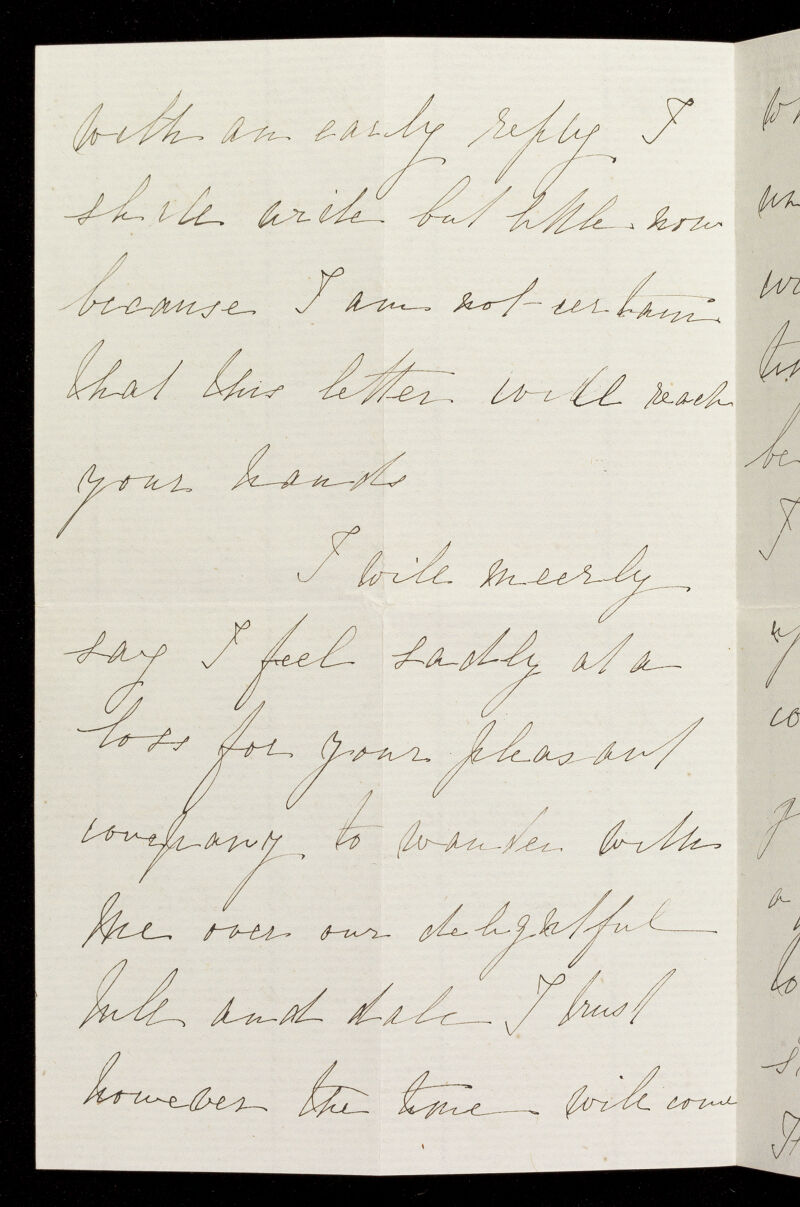 with an early reply I
shall write but little now
because I am not certain
that this letter will reach
your hands
I will meerly
say I feel sadly at a
loss for your pleasant
company to wander with
me over our delightful
hill and dale I trust
however the time will come